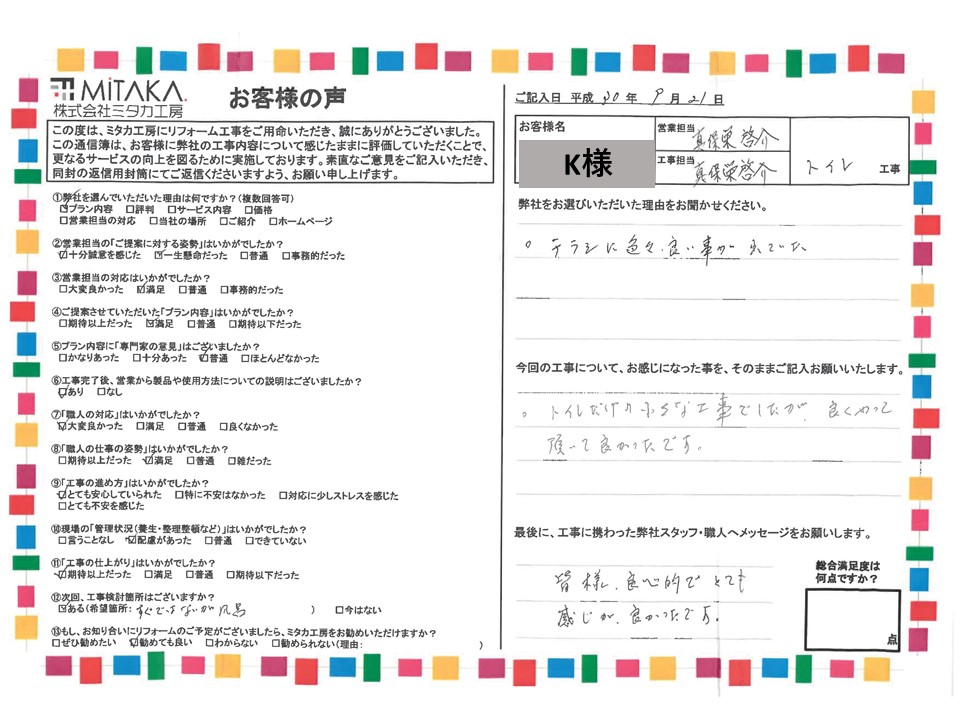 MiTAKA
株式会社ミタカ工房
お客様の声
この度は、ミタカ工房にリフォーム工事をご用命いただき、誠にありがとうございました。
この通信簿は、お客様に弊社の工事内容について感じたままに評価していただくことで、
更なるサービスの向上を図るために実施しております。素直なご意見をご記入いただき、
同封の返信用封筒にてご返信くださいますよう、お願い申し上げます。
①弊社を選んでいただいた理由は何ですか？（複数回答可）
☑プラン内容 □評判 □サービス内容 □価格
□営業担当の対応 □当社の場所 □ご紹介 □ホームページ
②営業担当の「ご提案に対する姿勢」はいかがでしたか？
☑十分誠意を感じた ☑一生懸命だった □普通 □事務的だった
③営業担当の対応はいかがでしたか？
□大変良かった ☑満足 □普通 □事務的だった
④ご提案させていただいた「プラン内容」はいかがでしたか？
□期待以上だった ☑満足 □普通 □期待以下だった
⑤プラン内容に「専門家の意見」はございましたか？
□かなりあった □十分あった ☑普通 □ほとんどなかった
⑥工事完了後、営業から製品や使用方法についての説明はございましたか？
☑あり □なし
⑦「職人の対応」はいかがでしたか？
☑大変良かった □満足 □普通 □良くなかった
⑧「職人の仕事の姿勢」はいかがでしたか？
□期待以上だった ☑満足 □普通 □雑だった
⑨「工事の進め方」はいかがでしたか？
☑とても安心していられた □特に不安はなかった □対応に少しストレスを感じた
□とても不安を感じた
⑩現場の「管理状況（養生・整理整頓など）」はいかがでしたか？
□言うことなし ☑配慮があった □普通 □できていない
⑪「工事の仕上がり」はいかがでしたか？
☑期待以上だった □満足 □普通 □期待以下だった
⑫次回、工事検討箇所はございますか？
☑ある（希望箇所：すぐではないが風呂 ） □今はない
⑬もし、お知り合いにリフォームのご予定がございましたら、ミタカ工房をお勧めいただけますか？
□ぜひ勧めたい ☑勧めても良い □わからない □勧められない（理由： ）
ご記入日 平成 30 年 9 月 21 日
お客様名
K様
営業担当 真保栄啓介
工事担当 真保栄啓介
トイレ 工事
弊社をお選びいただいた理由をお聞かせください。
。チラシに色々良い事が出ていた
今回の工事について、お感じになった事を、そのままご記入お願いいたします。
。トイレだけの小さな工事でしたが、良くやって
頂いて良かったです。
最後に、工事に携わった弊社スタッフ・職人へメッセージをお願いします。
皆様、良心的でとても
感じが、良かったです。
総合満足度は
何点ですか？
点